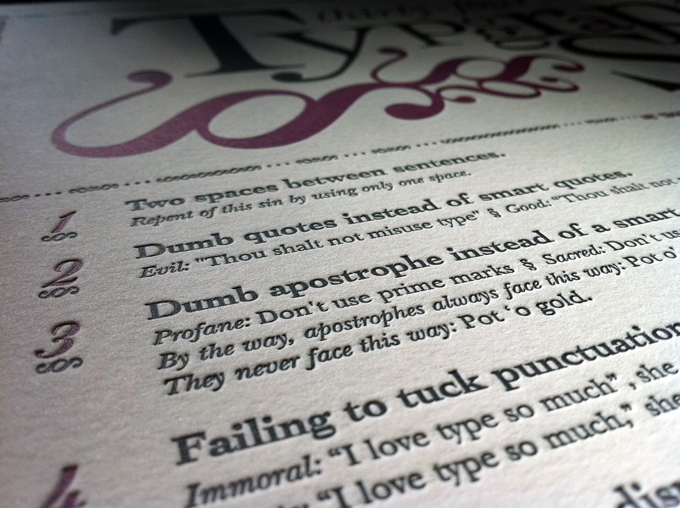 thirty four
Typograp
1 Two spaces between sentences.
Repent of this sin by using only one space.
2 Dumb quotes instead of smart quotes.
Evil: "Thou shalt not misuse type" § Good: “Thou shalt not
3 Dumb apostrophe instead of a smart
Profane: Don't use prime marks § Sacred: Don’t us
By the way, apostrophes always face this way: Pot o’
They never face this way: Pot ‘o gold.
4 Failing to tuck punctuation
Immoral: “I love type so much” , she
“I love type so much,” she